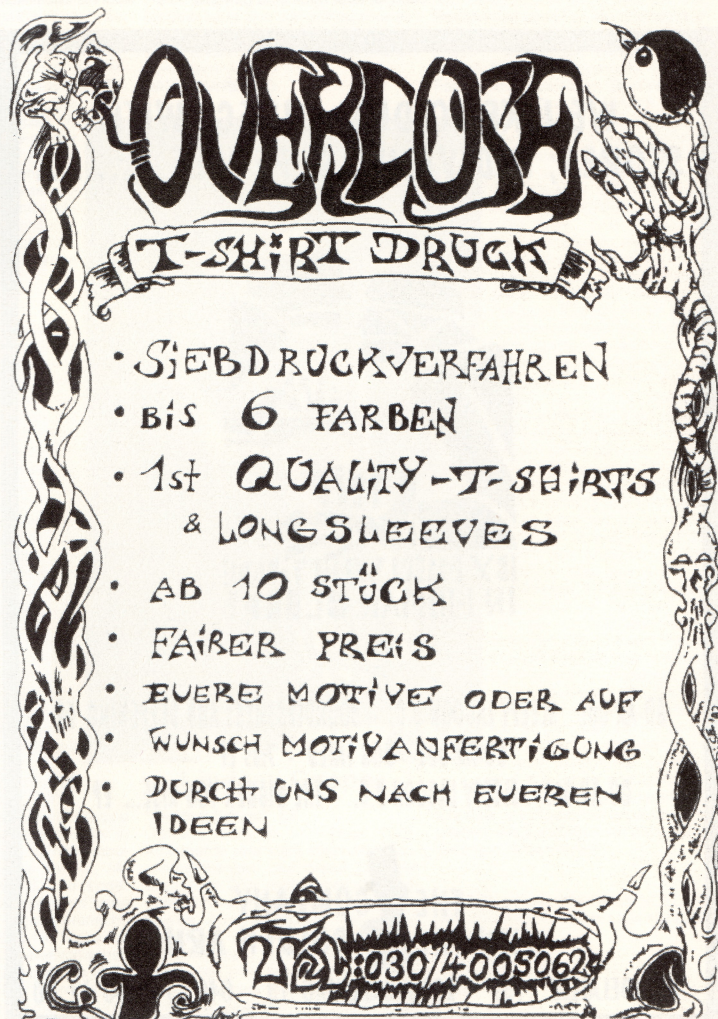 OVERDOSE
T-SHiRT DRUCK
• SiEBDRUCKVERFAHREN
• BiS 6 FARBEN
• 1st QUALiTY-T-SHiRTS
& LONGSLEEVES
• AB 10 STÜCK
• FAiRER PREiS
• EUERE MOTiVE ODER AUF
• WUNSCH MOTiVANFERTiGUNG
• DURCH UNS NACH EUEREN
IDEEN
TEL:030/4005062